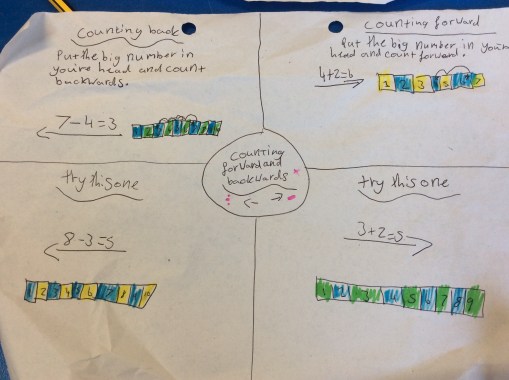 Counting back
Put the big number in
you're head and count
backwards.
7-4=3
Counting forward
Put the big number in you're
head and count forward.
4+2=6
1 2 3 5 6 7
Counting
forward and
backwards
← →
try this one
8-3=5
1 2 3 4 5 6 7 8 9 10
try this one
3+2=5
1 2 3 4 5 6 7 8 9